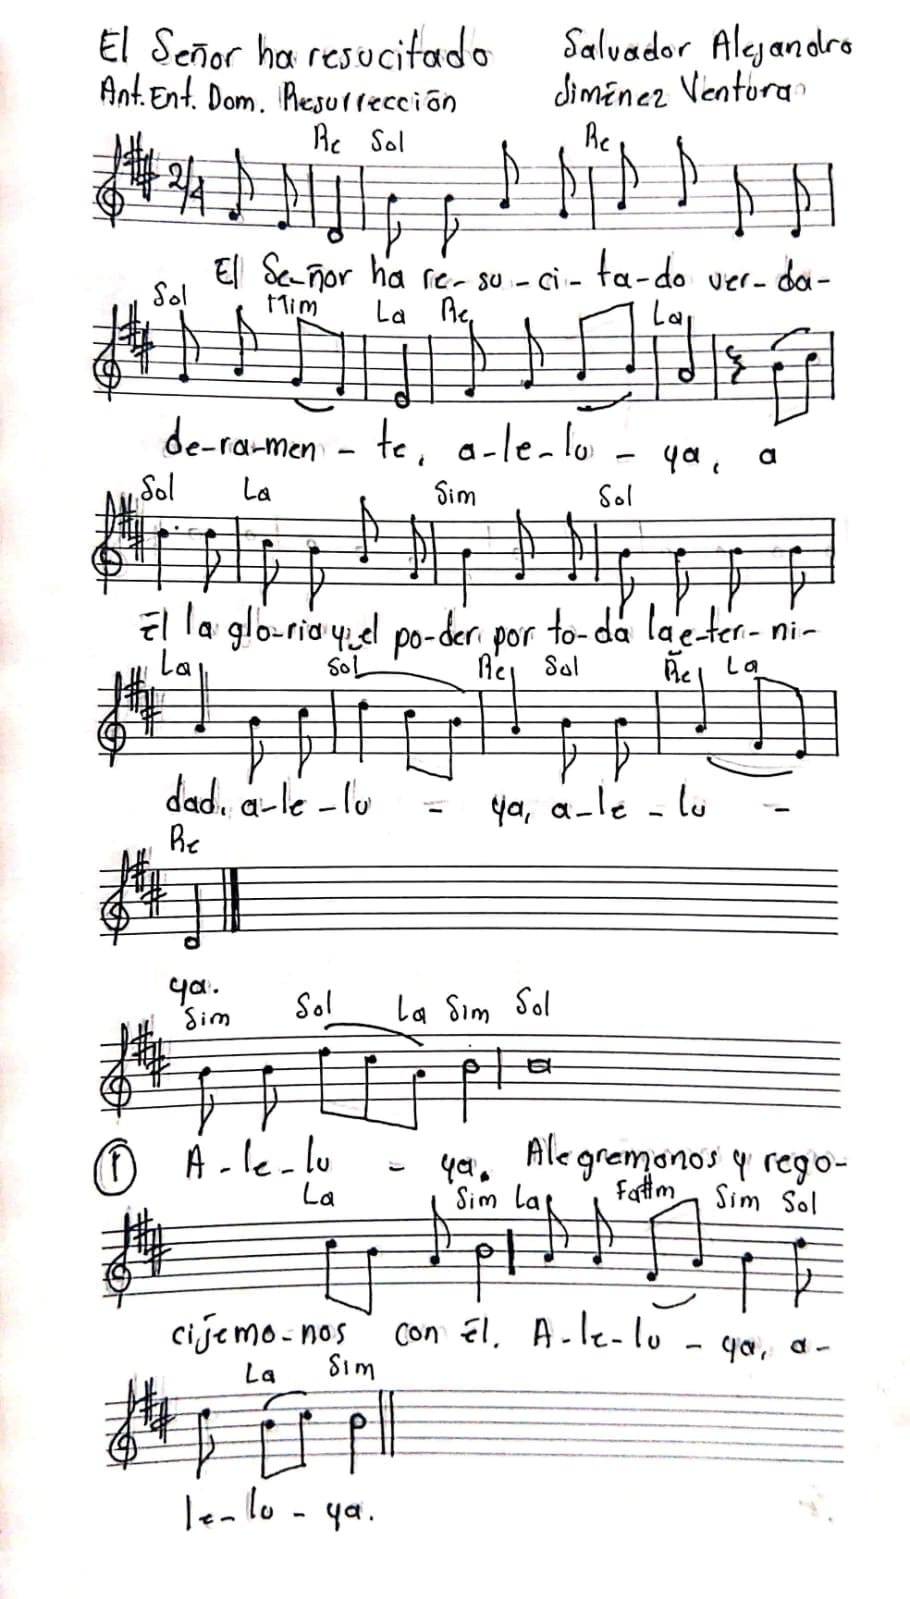 El Señor ha resucitado Salvador Alejandro
Ant. Ent. Dom. Resurrección Jiménez Ventura
Re Sol Re
2/4
El Se-ñor ha re-su-ci-ta-do ver-da-
Sol Mim La Re La
de-ra-men-te, a-le-lu-ya, a
Sol La Sim Sol
Él la glo-ria y el po-der por to-da la e-ter-ni-
La Sol Re Sol Re La
dad. a-le-lu-ya, a-le-lu-
Re
ya.
Sim Sol La Sim Sol
① A-le-lu-ya. Alegremonos y rego-
La Sim La Fa#m Sim Sol
cijemo-nos con Él. A-le-lu-ya, a-
La Sim
le-lu-ya.